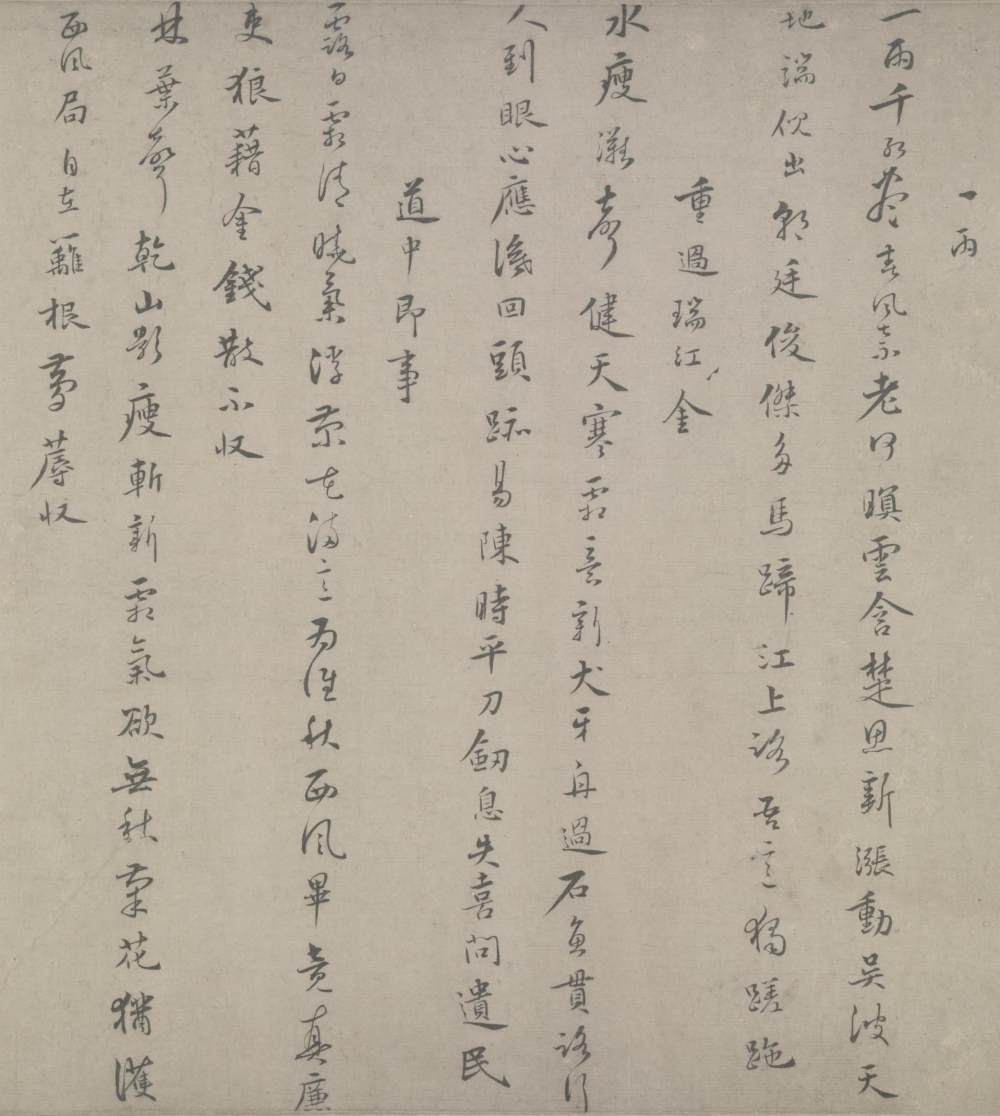 一雨
一雨千紅盡春風奈老何暝雲含楚思新漲動吳波天
地端倪出朝廷俊傑多馬蹄江上路吾意獨蹉跎
重過瑞江金
水瘦灘聲健天寒霜意新犬牙舟過石魚貫路行
人到眼心應識回頭跡易陳時平刀劒息失喜問遺民
道中即事
露白霜清曉氣浮菊花滿意為誰秋西風畢竟真廉
吏狼藉金錢散不收
林葉聲乾山影瘦斬新霜氣欲無秋菊花猶
西風局自在籬根夢蓐收